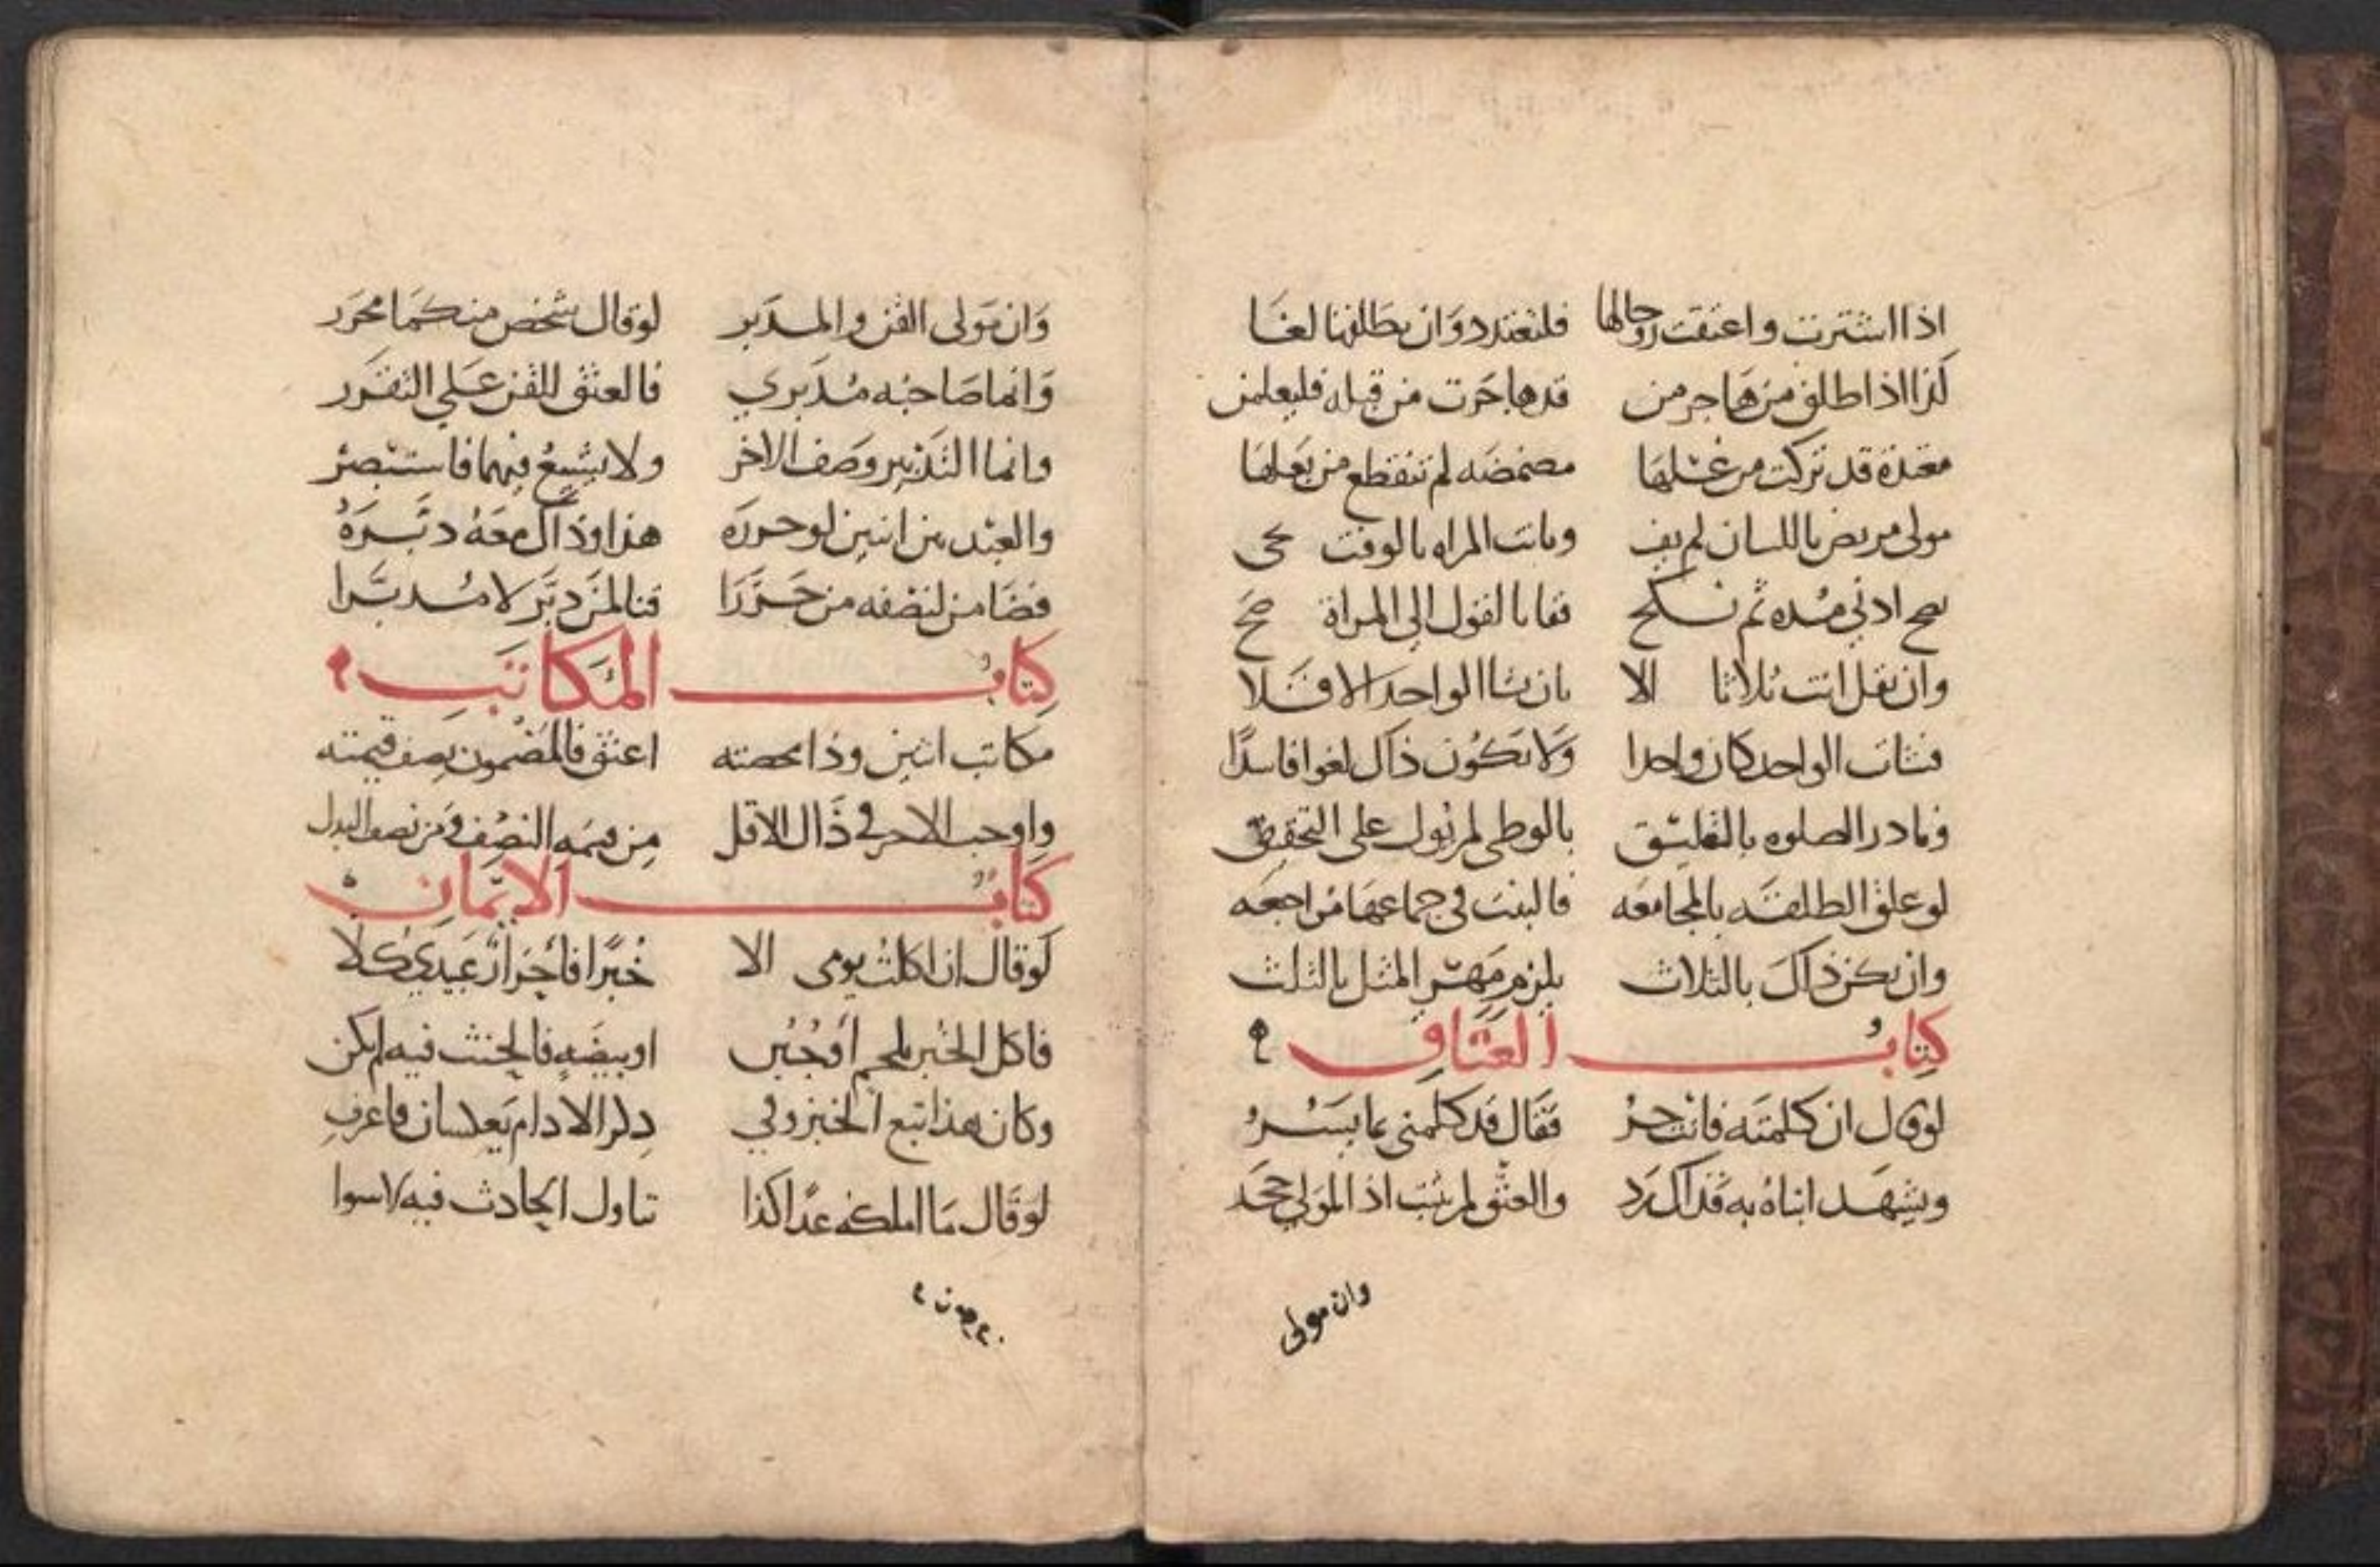 اذا اشترت واعتقت زوجالها فلتعتدد وان يطلقها لغا
كذا اذا طلق من هاجر من قد هاجرت من قبله فليعلمن
معتدة قد تركت من غسلها مضمضه لم تنقطع من بعلها
مولى مريض باللسان لم يف وبانت المراه بالوقت
صح ادنى مده ثم نكح فقابا لقول الى المراة صح
وان يقل انت ثلاثا الا بان تشا الواحد الا فلا
فشات الواحد كان واحدا ولا يكون ذاك لغوا فاسدا
ونادر الصلوه بالتعليق بالوطى لم يول على التحقيق
لو علق الطلقه بالمجامعه فاللبث في جماعها مراجعه
وان يكن ذاك بالثلاث يلزم مهر المثل باللبث
كتاب العتاق
لو قال ان كلمته فانت حر فقال قد كلمنى بما يسر
ويشهد ابناه به فذاك رد والعتق لم يثبت اذ المولى جحد
وان مولى
وان مولى القن والمدبر لو قال شخص منكما محرر
وانما صاحبه مدبري فالعتق للقن على التقرر
وانما التدبير وصف الاخر ولا يشيع فيهما فاستبصر
والعبد بين اثنين لو حرره هذا وذاك معه دبره
فضامن لنصفه من حررا قنا لمن دبر لا مدبرا
كتاب المكاتب
مكاتب اثنين وذا بحصته اعتق فالمضمون نصف قيمته
واوجب الاخر في ذاك الاقل من قيمه النصف ومن نصف البدل
كتاب الايمان
لو قال ان اكلت يومى الا خبزا فاحرار عبيدي كلا
فاكل الخبز بلحم او جبن او بيضه فالحنث فيه لم يكن
وكان هذا تبع الخبز وفي ذكر الادام يعلسان فاعرف
لو قال ما املكه غدا كذا تناول الحادث فيه لا سوا